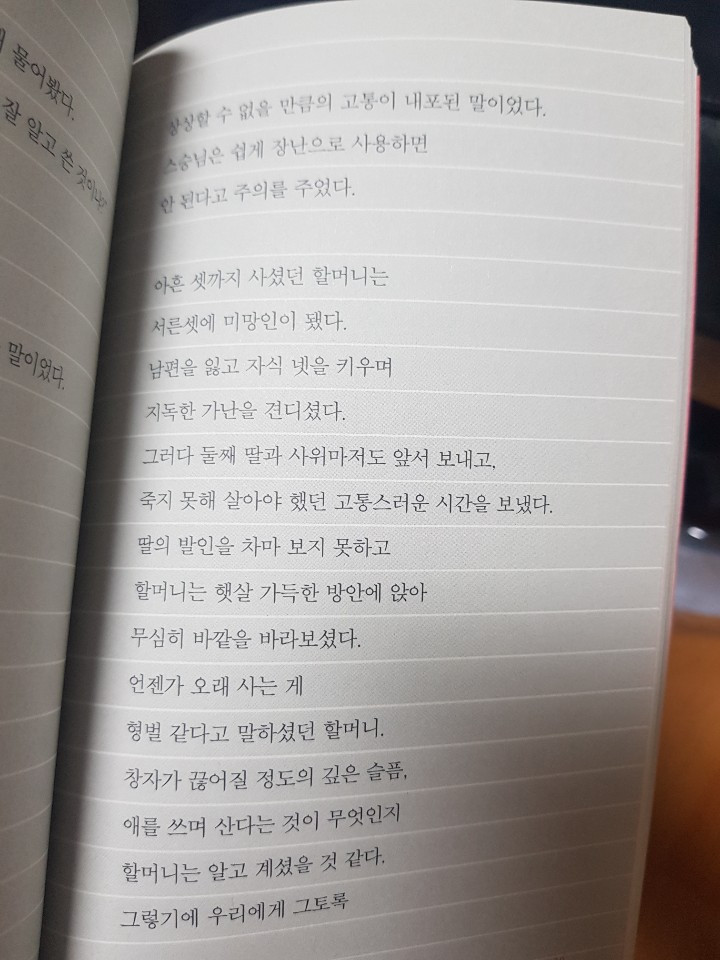 물어봤다.
잘 알고 쓴 것이냐?
말이었다.
상상할 수 없을 만큼의 고통이 내포된 말이었다.
스승님은 쉽게 장난으로 사용하면
안 된다고 주의를 주었다.
아흔 셋까지 사셨던 할머니는
서른셋에 미망인이 됐다.
남편을 잃고 자식 넷을 키우며
지독한 가난을 견디셨다.
그러다 둘째 딸과 사위마저도 앞서 보내고,
죽지 못해 살아야 했던 고통스러운 시간을 보냈다.
딸의 발인을 차마 보지 못하고
할머니는 햇살 가득한 방안에 앉아
무심히 바깥을 바라보셨다.
언젠가 오래 사는 게
형벌 같다고 말하셨던 할머니.
창자가 끊어질 정도의 깊은 슬픔,
애를 쓰며 산다는 것이 무엇인지
할머니는 알고 계셨을 것 같다.
그렇기에 우리에게 그토록